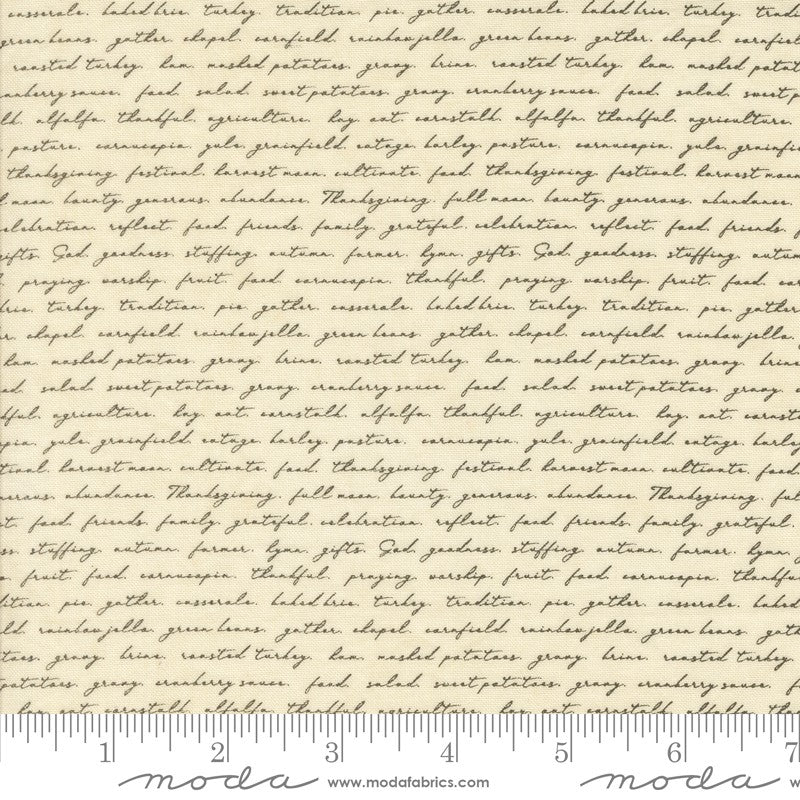 casserole. baked brie. turkey. tradition. pie. gather. casserole. baked brie. turkey. tradi
green beans. gather. chapel. cornfield. rainbow jello. green beans. gather. chapel. cornfiel
roasted turkey. ham. mashed potatoes. gravy. brine. roasted turkey. ham. mashed potat
anberry sauce. food. salad. sweet potatoes. gravy. cranberry sauce. food. salad. sweet p
lk. alfalfa. thankful. agriculture. hay. oat. cornstalk. alfalfa. thankful. agriculture.
pasture. cornucopia. yule. grainfield. cotage. barley. pasture. cornucopia. yule. grainfie
thanksgiving. festival. harvest moon. cultivate. food. thanksgiving. festival. harvest moon
l moon. bounty. generous. abundance. Thanksgiving. full moon. bounty. generous. abundance.
elebration. reflect. food. friends. family. grateful. celebration. reflect. food. friends. f
gifts. God. goodness. stuffing. autumn. farmer. hymn. gifts. God. goodness. stuffing. autum
praying. worship. fruit. food. cornucopia. thankful. praying. worship. fruit. food. co
brie. turkey. tradition. pie. gather. casserole. baked brie. turkey. tradition. pie. gather
r. chapel. cornfield. rainbow jello. green beans. gather. chapel. cornfield. rainbow jello.
ham. mashed potatoes. gravy. brine. roasted turkey. ham. mashed potatoes. gravy. brine
od. salad. sweet potatoes. gravy. cranberry sauce. food. salad. sweet potatoes. gravy.
kful. agriculture. hay. oat. cornstalk. alfalfa. thankful. agriculture. hay. oat. cornst
opia. yule. grainfield. cotage. barley. pasture. cornucopia. yule. grainfield. cotage. barley
tival. harvest moon. cultivate. food. thanksgiving. festival. harvest moon. cultivate. food.
nerous. abundance. Thanksgiving. full moon. bounty. generous. abundance. Thanksgiving. ful
t. food. friends. family. grateful. celebration. reflect. food. friends. family. grateful.
ss. stuffing. autumn. farmer. hymn. gifts. God. goodness. stuffing. autumn. farmer. hymn.
fruit. food. cornucopia. thankful. praying. worship. fruit. food. cornucopia. thankfu
dition. pie. gather. casserole. baked brie. turkey. tradition. pie. gather. casserole. baked
ld. rainbow jello. green beans. gather. chapel. cornfield. rainbow jello. green beans. gath
toes. gravy. brine. roasted turkey. ham. mashed potatoes. gravy. brine. roasted turkey.
potatoes. gravy. cranberry sauce. food. salad. sweet potatoes. gravy. cranberry sauce. f
hay. oat. cornstalk. alfalfa. thankful. agriculture. hay. oat. cornstalk. alfalfa. thank
1 2 3 4 5 6 7
moda www.modafabrics.com moda w